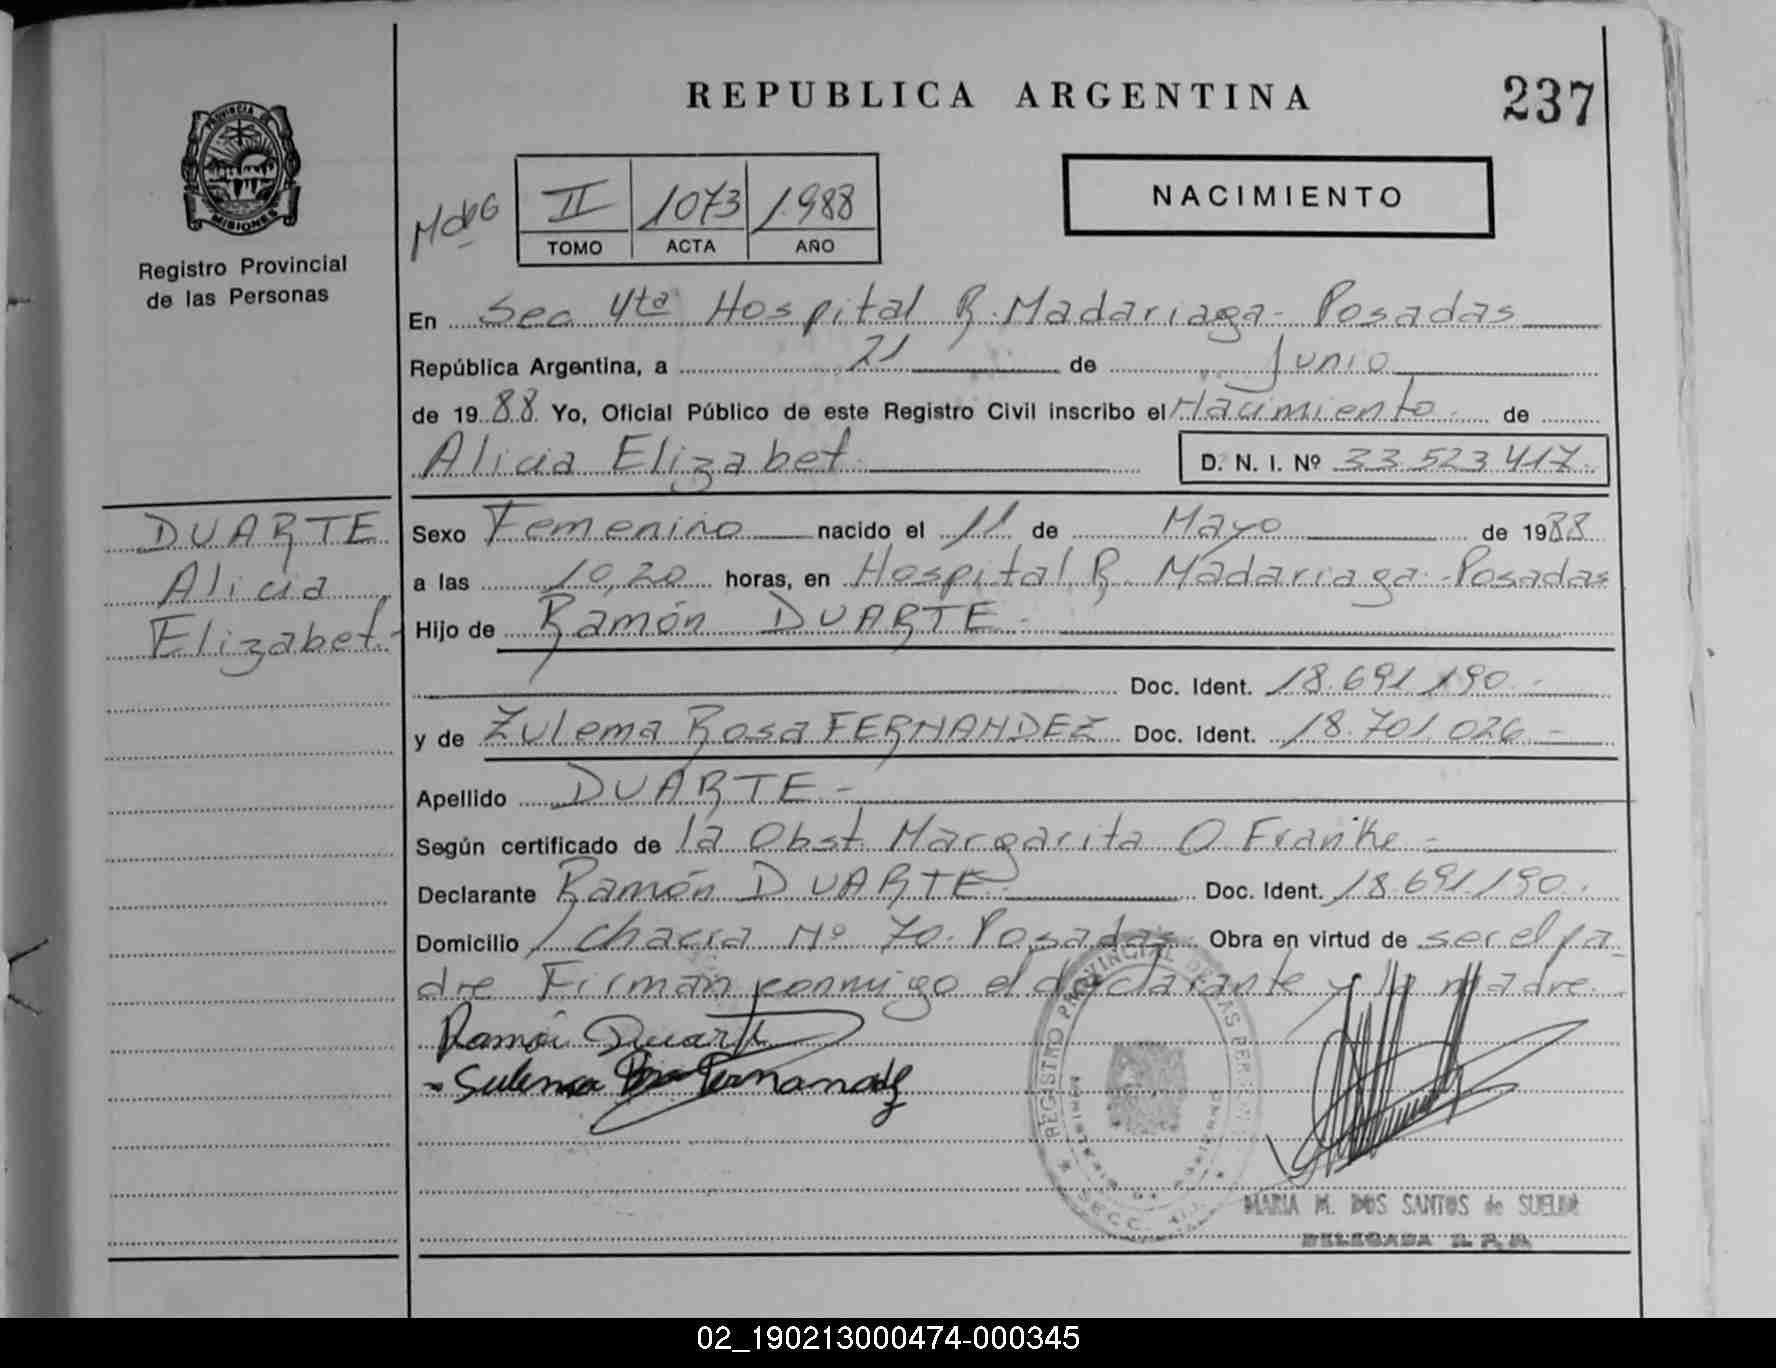 PROVINCIA DE
MISIONES
Registro Provincial
de las Personas
REPUBLICA ARGENTINA
237
MdeG
II 1073 1.988
TOMO ACTA AÑO
NACIMIENTO
En Sec 4ta Hospital R. Madariaga - Posadas
República Argentina, a 21 de Junio
de 19 88 Yo, Oficial Público de este Registro Civil inscribo el Nacimiento de
Alicia Elizabet D. N. I. Nº 33 523 417
DUARTE
Alicia
Elizabet.-
Sexo Femenino nacido el 11 de Mayo de 1988
a las 10,20 horas, en Hospital R. Madariaga - Posadas
Hijo de Ramón DUARTE -
Doc. Ident. 18.691.190.-
y de Zulema Rosa FERNANDEZ Doc. Ident. 18.701.026.-
Apellido DUARTE -
Según certificado de la Obst. Margarita O Franke -
Declarante Ramón DUARTE - Doc. Ident. 18.691.190.
Domicilio Chacra Nº 70. Posadas Obra en virtud de ser el pa-
dre Firman conmigo el declarante y la madre.
Ramón Duarte
Sulema Rosa Fernandez
REGISTRO PROVINCIAL DE LAS PERSONAS
MARIA M. DOS SANTOS de SUELDE
DELEGADA R. P. P.
02_190213000474-000345